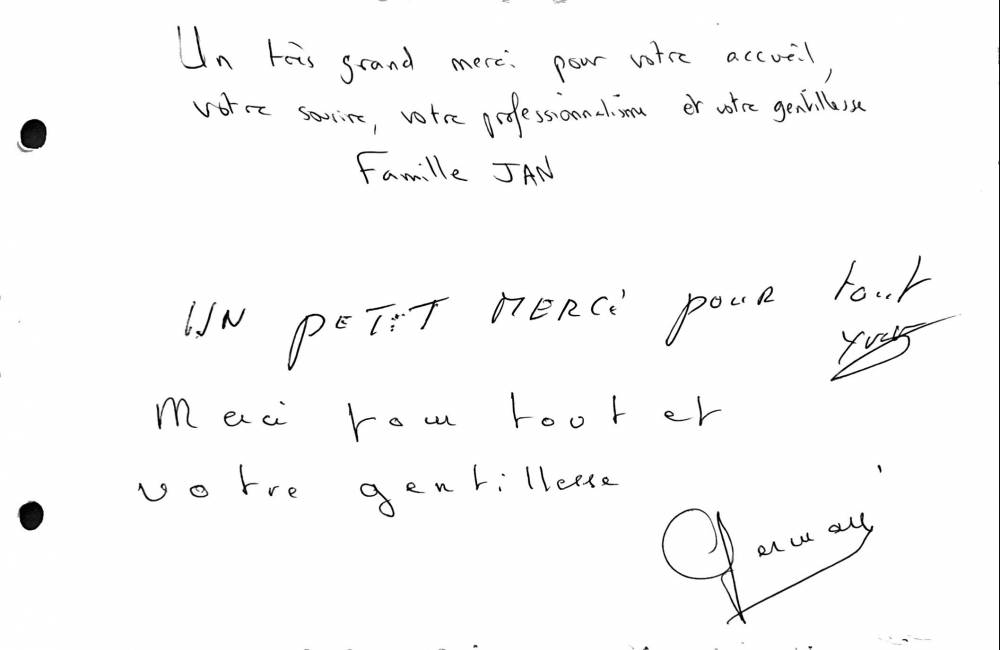 Un très grand merci pour votre accueil,
votre sourire, votre professionnalisme et votre gentillesse
Famille JAN
UN PETIT MERCi pour tout
Merci pour tout et
votre gentillesse